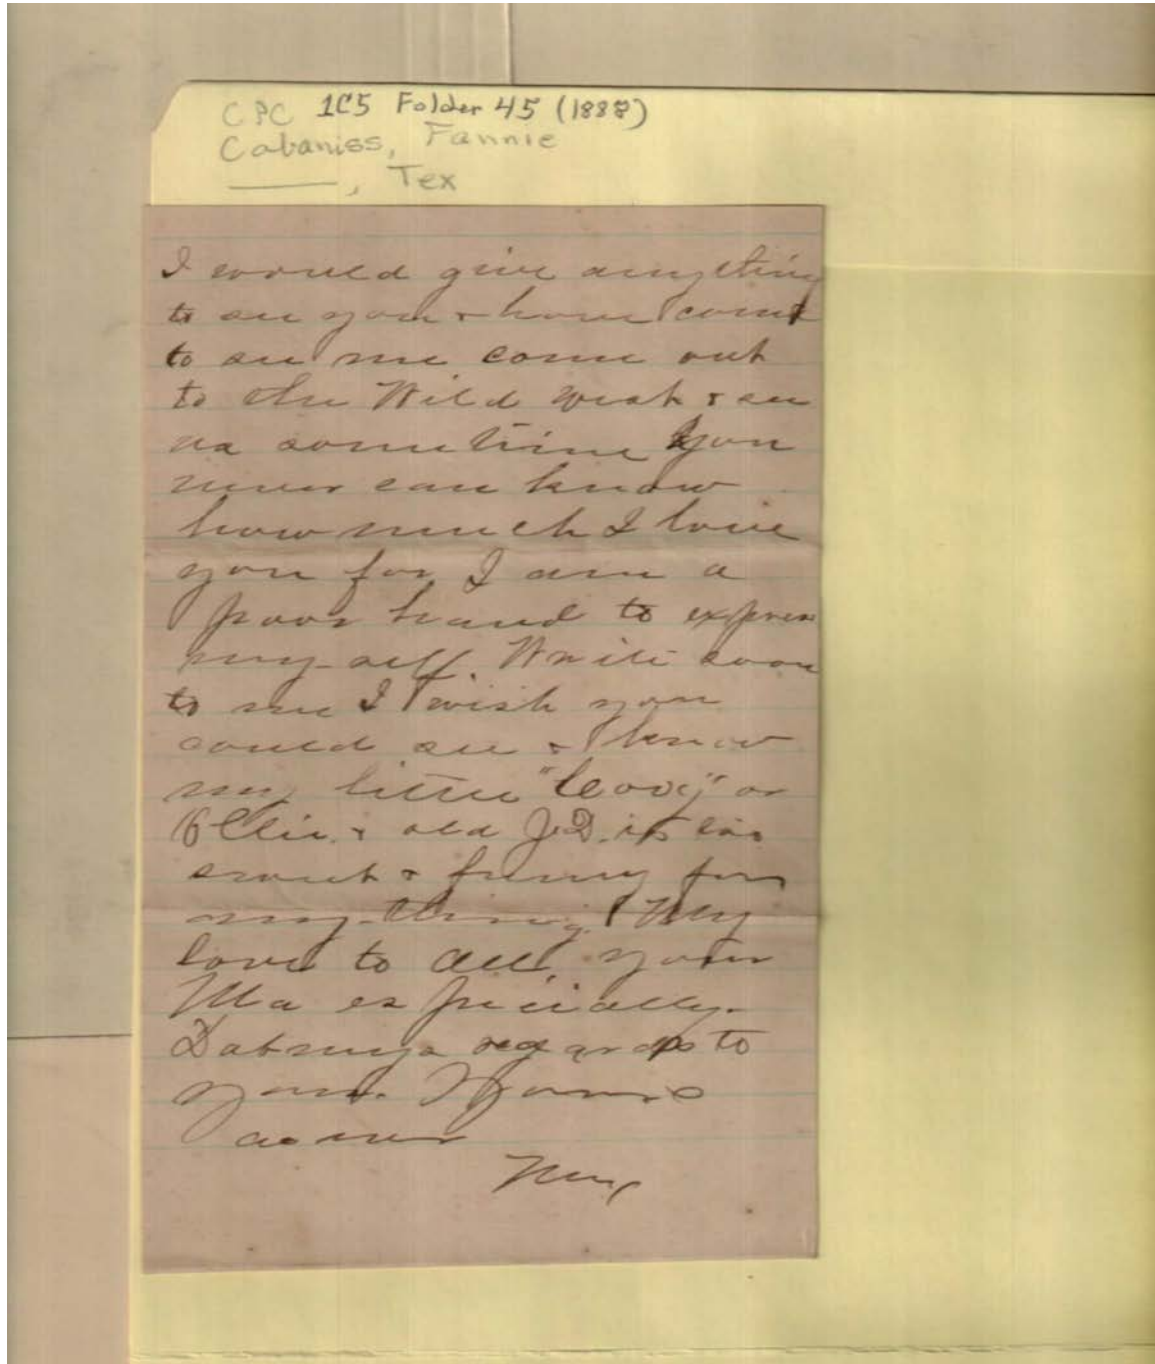 CPC 1C5 Folder 45 (1888)
Cabaniss, Fannie
, Tex
I would give anything
to see you & have come
to see me come out
to the Wild West & see
us sometime you
never can know
how much I love
you for I am a
poor hand to express
my-self Write soon
to me I wish you
could see & know
my little or
Ollie. & old J.D. is
smart & funny for
any-thing. My
love to all, your
Ma especially.
regards to
you. Yours
as ever